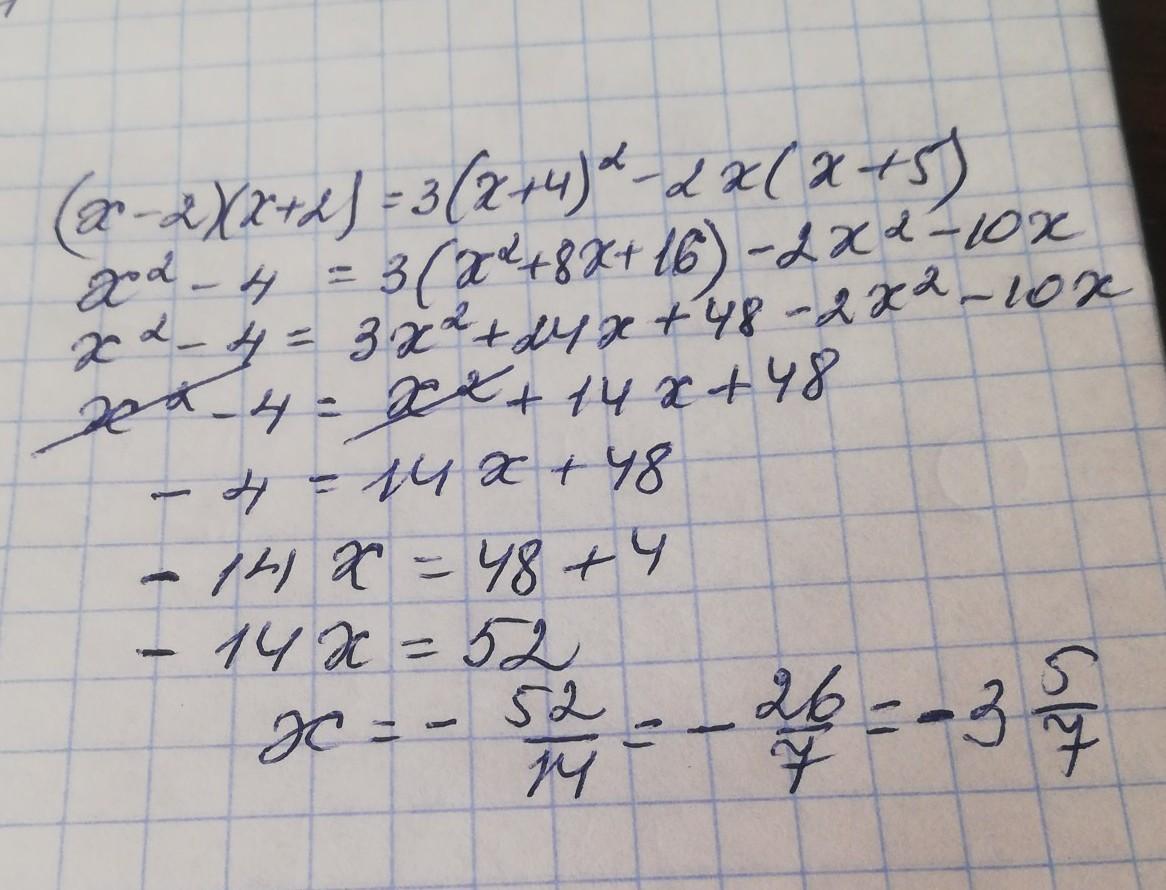 (x-2)(x+2)=3(x+4)²-2x(x+5)
x²-4=3(x²+8x+16)-2x²-10x
x²-4=3x²+24x+48-2x²-10x
x²-4=x²+14x+48
-4=14x+48
-14x=48+4
-14x=52
x=-52/14=-26/7=-3 5/7